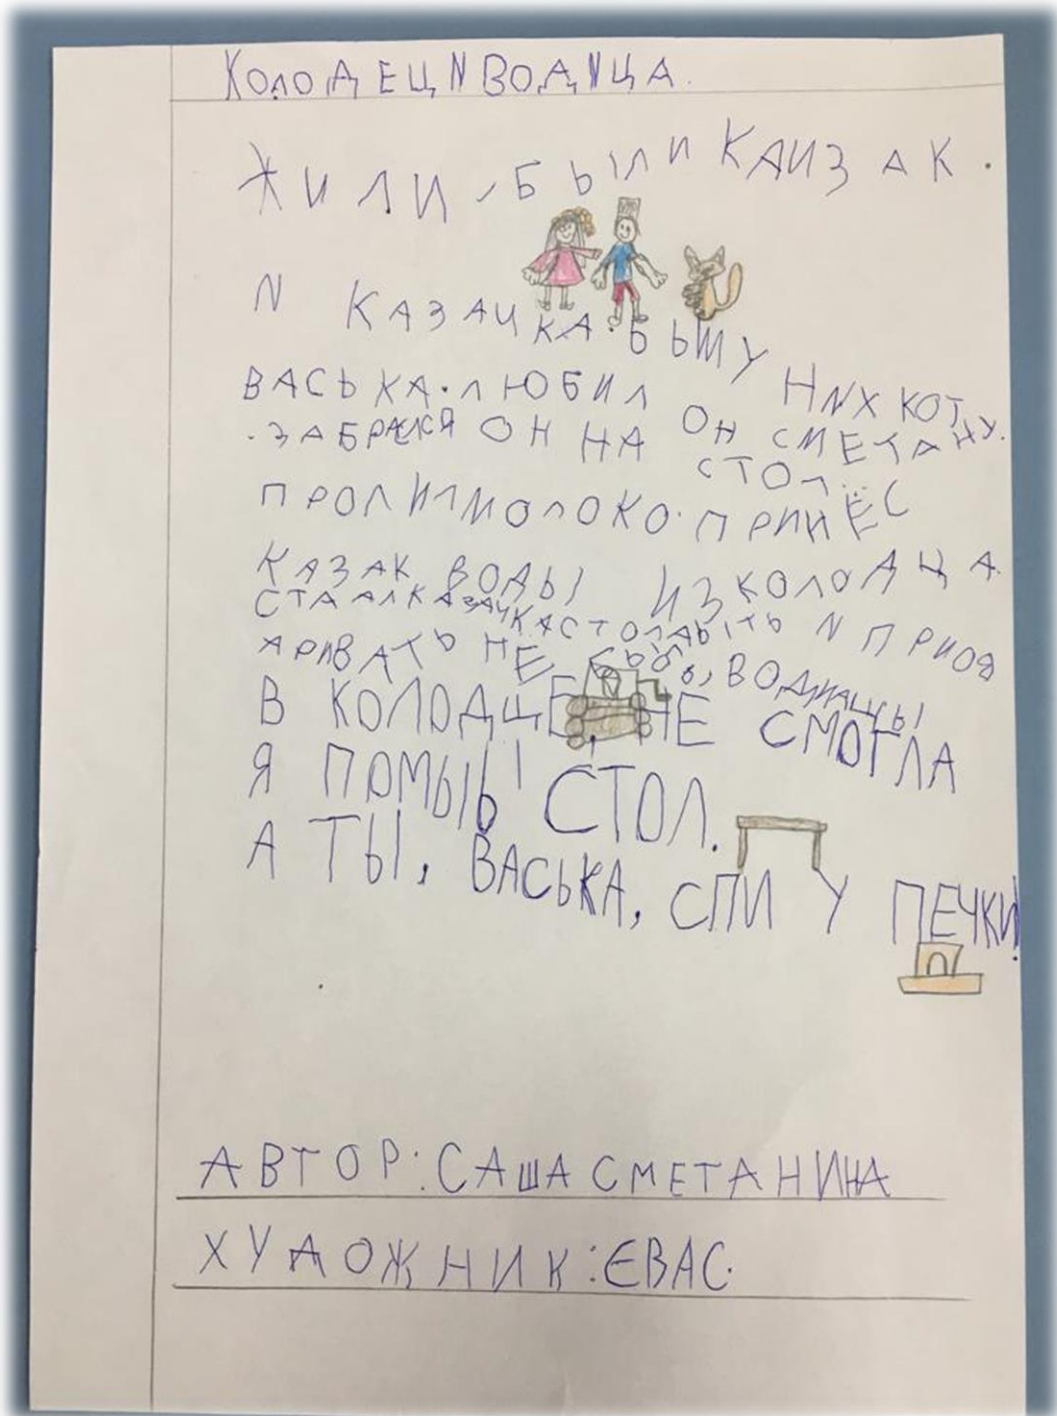 КОЛОДЕЦ И ВОДИЦА.
ЖИЛИ-БЫЛИ КАИЗАК.
И КАЗАЧКА. БЫЛ У НИХ КОТ
ВАСЬКА. ЛЮБИЛ ОН СМЕТАНУ.
. ЗАБРАЛСЯ ОН НА СТОЛ
ПРОЛИЛ МОЛОКО. ПРИНЁС
КАЗАК ВОДЫ ИЗ КОЛОДЦА
КАЗАЧКА СТОЛ МЫТЬ И ПРИГОВ
АРИВАТЬ НЕ ВОДИЦЫ
В КОЛОДЦЕ, НЕ СМОГЛА
Я ПОМЫЬ СТОЛ.
А ТЫ, ВАСЬКА, СПИ У ПЕЧКИ!
АВТОР: САША СМЕТАНИНА
ХУДОЖНИК: ЕВАС.